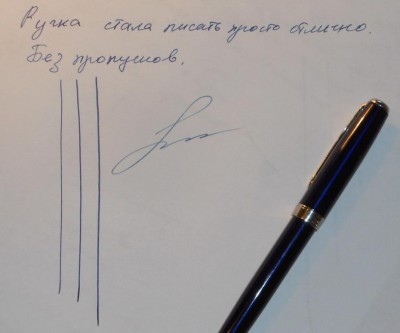 Ручка стала писать просто отлично.
Без пропусков.